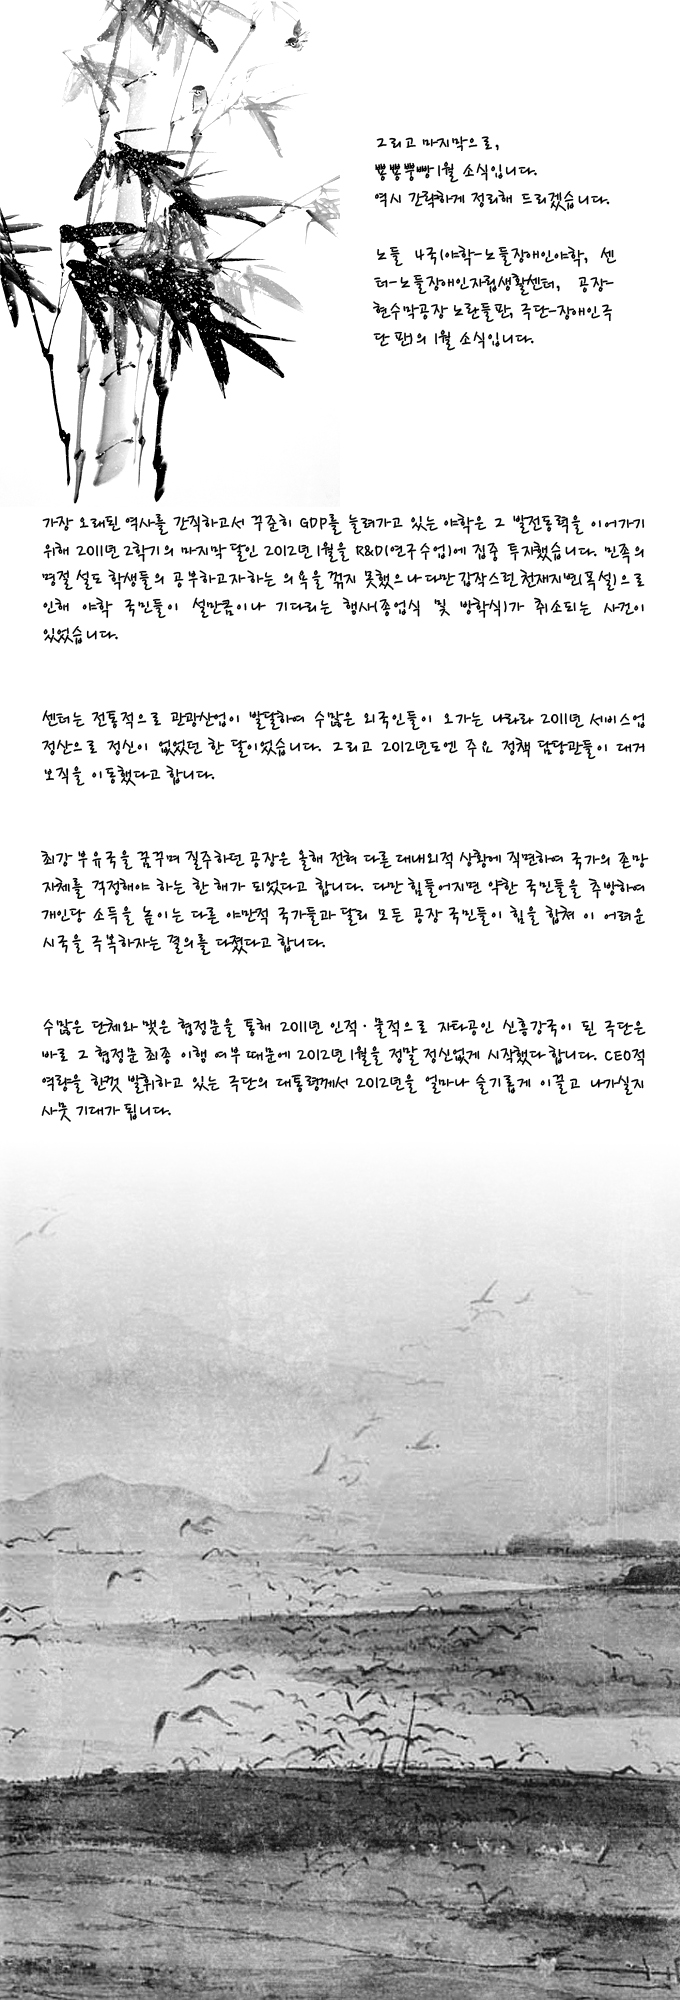 그리고 마지막으로,
뿅뿅뿅빵1월 소식입니다.
역시 간략하게 정리해 드리겠습니다.
노들 4국(야학-노들장애인야학, 센
터-노들장애인자립생활센터, 공장-
현수막공장 노란들판, 극단-장애인극
단 판)의 1월 소식입니다.
가장 오래된 역사를 간직하고서 꾸준히 GDP를 늘려가고 있는 야학은 그 발전동력을 이어가기
위해 2011년 2학기의 마지막 달인 2012년 1월을 R&D(연구수업)에 집중 투자했습니다. 민족의
명절 설도 학생들의 공부하고자하는 의욕을 꺾지 못했으나 다만 갑작스런 천재지변(폭설)으로
인해 야학 국민들이 설만큼이나 기다리는 행사(종업식 및 방학식)가 취소되는 사건이
있었습니다.
센터는 전통적으로 관광산업이 발달하여 수많은 외국인들이 오가는 나라라 2011년 서비스업
정산으로 정신이 없었던 한 달이었습니다. 그리고 2012년도엔 주요 정책 담당관들이 대거
보직을 이동했다고 합니다.
최강 부유국을 꿈꾸며 질주하던 공장은 올해 전혀 다른 대내외적 상황에 직면하여 국가의 존망
자체를 걱정해야 하는 한 해가 되었다고 합니다. 다만 힘들어지면 약한 국민들을 추방하여
개인당 소득을 높이는 다른 야만적 국가들과 달리 모든 공장 국민들이 힘을 합쳐 이 어려운
시국을 극복하자는 결의를 다졌다고 합니다.
수많은 단체와 맺은 협정문을 통해 2011년 인적·물적으로 자타공인 신흥강국이 된 극단은
바로 그 협정문 최종 이행 여부 때문에 2012년 1월을 정말 정신없게 시작했다 합니다. CEO적
역량을 한껏 발휘하고 있는 극단의 대통령께서 2012년을 얼마나 슬기롭게 이끌고 나가실지
사뭇 기대가 됩니다.